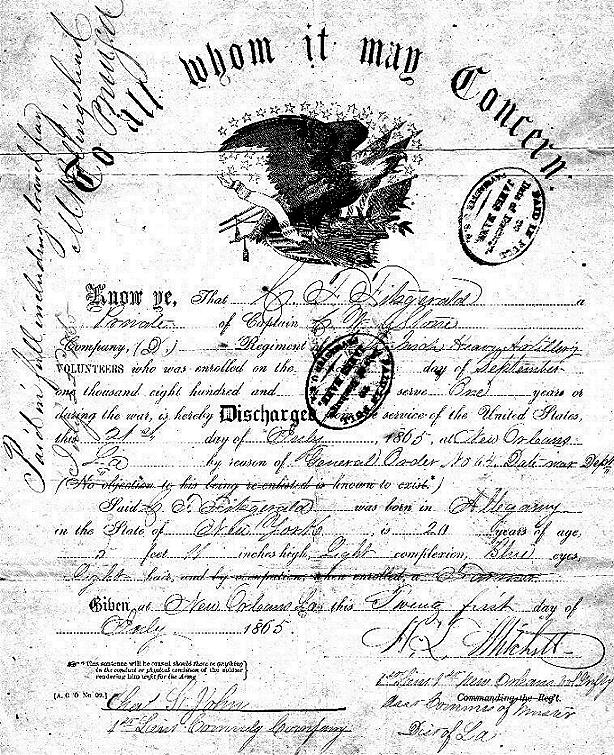 To all whom it may Concern.
Know ye, That C. F. Fitzgerald a
Private of Captain
Company, (D.) Regiment of Heavy Artillery
VOLUNTEERS who was enrolled on the day of September
one thousand eight hundred and serve One years or
during the war, is hereby Discharged from the service of the United States,
this 21st day of July, 1865, at New Orleans
La by reason of General Order No 64. Dept
(No objection to his being re-enlisted is known to exist.*)
Said C. F. Fitzgerald was born in Allegany
in the State of New York, is 20 years of age,
5 feet 11 inches high, Light complexion, Blue eyes,
Light hair, and by occupation, when enrolled, a Farmer.
Given at New Orleans La this first day of
July 1865.
* This sentence will be erased should there be anything
in the conduct or physical condition of the soldier
rendering him unfit for the Army.
[A. G. O. No. 99.]
1st Lieut Comndg Company
H. L. Mitchell
1st Lieut 1st New Orleans Vol Infty
Commanding the Reg't.
Asst Commis of Muster
Dist of La
Paid in full including travel pay
PAID IN FULL
JAMES MANN
PAID IN FULL
JAMES MANN